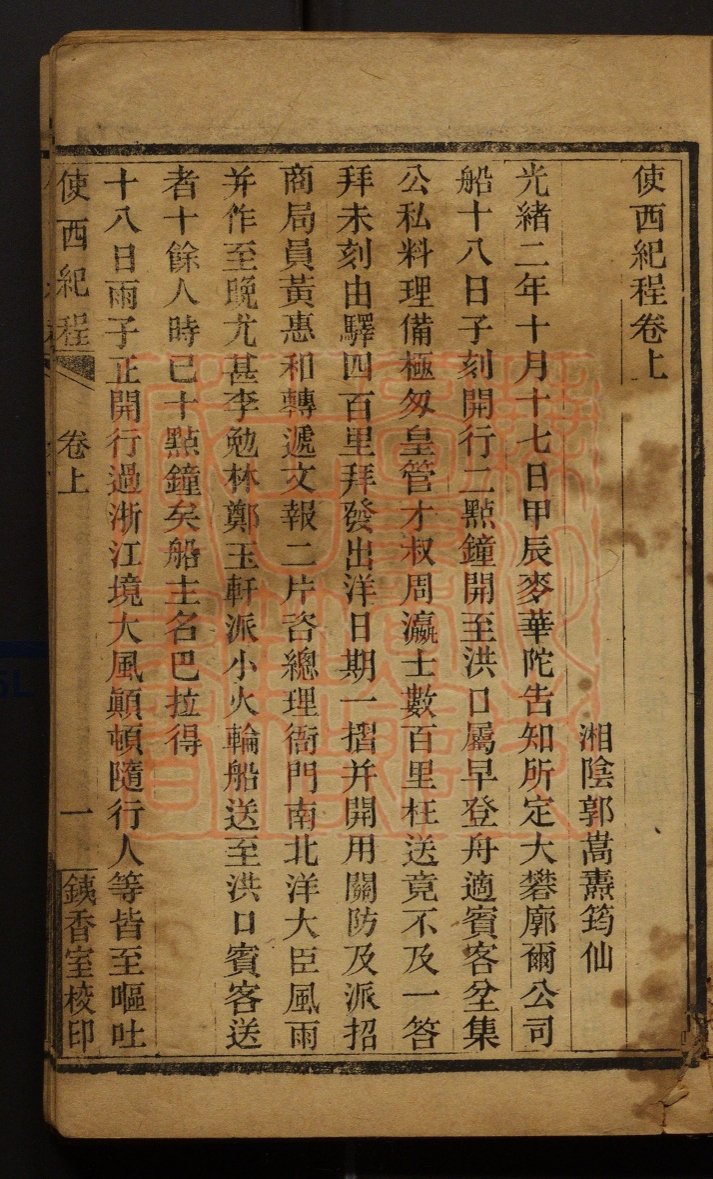 使西紀程卷上
湘陰郭嵩燾筠仙
光緒二年十月十七日甲辰麥華陀告知所定大礬廓爾公司
船十八日子刻開行二點鐘開至洪口屬早登舟適賓客坌集
公私料理備極匆皇管才叔周瀛士數百里枉送竟不及一答
拜未刻由驛四百里拜發出洋日期一摺并開用關防及派招
商局員黃惠和轉遞文報二片咨總理衙門南北洋大臣風雨
并作至晚尤甚李勉林鄭玉軒派小火輪船送至洪口賓客送
者十餘人時已十點鐘矣船主名巴拉得
十八日雨子正開行過浙江境大風顚頓隨行人等皆至嘔吐
使西紀程 卷上 一 銕香室校印